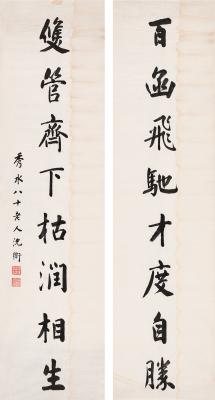 百函飛馳才度自勝
雙管齊下枯潤相生
秀水八十老人沈衛